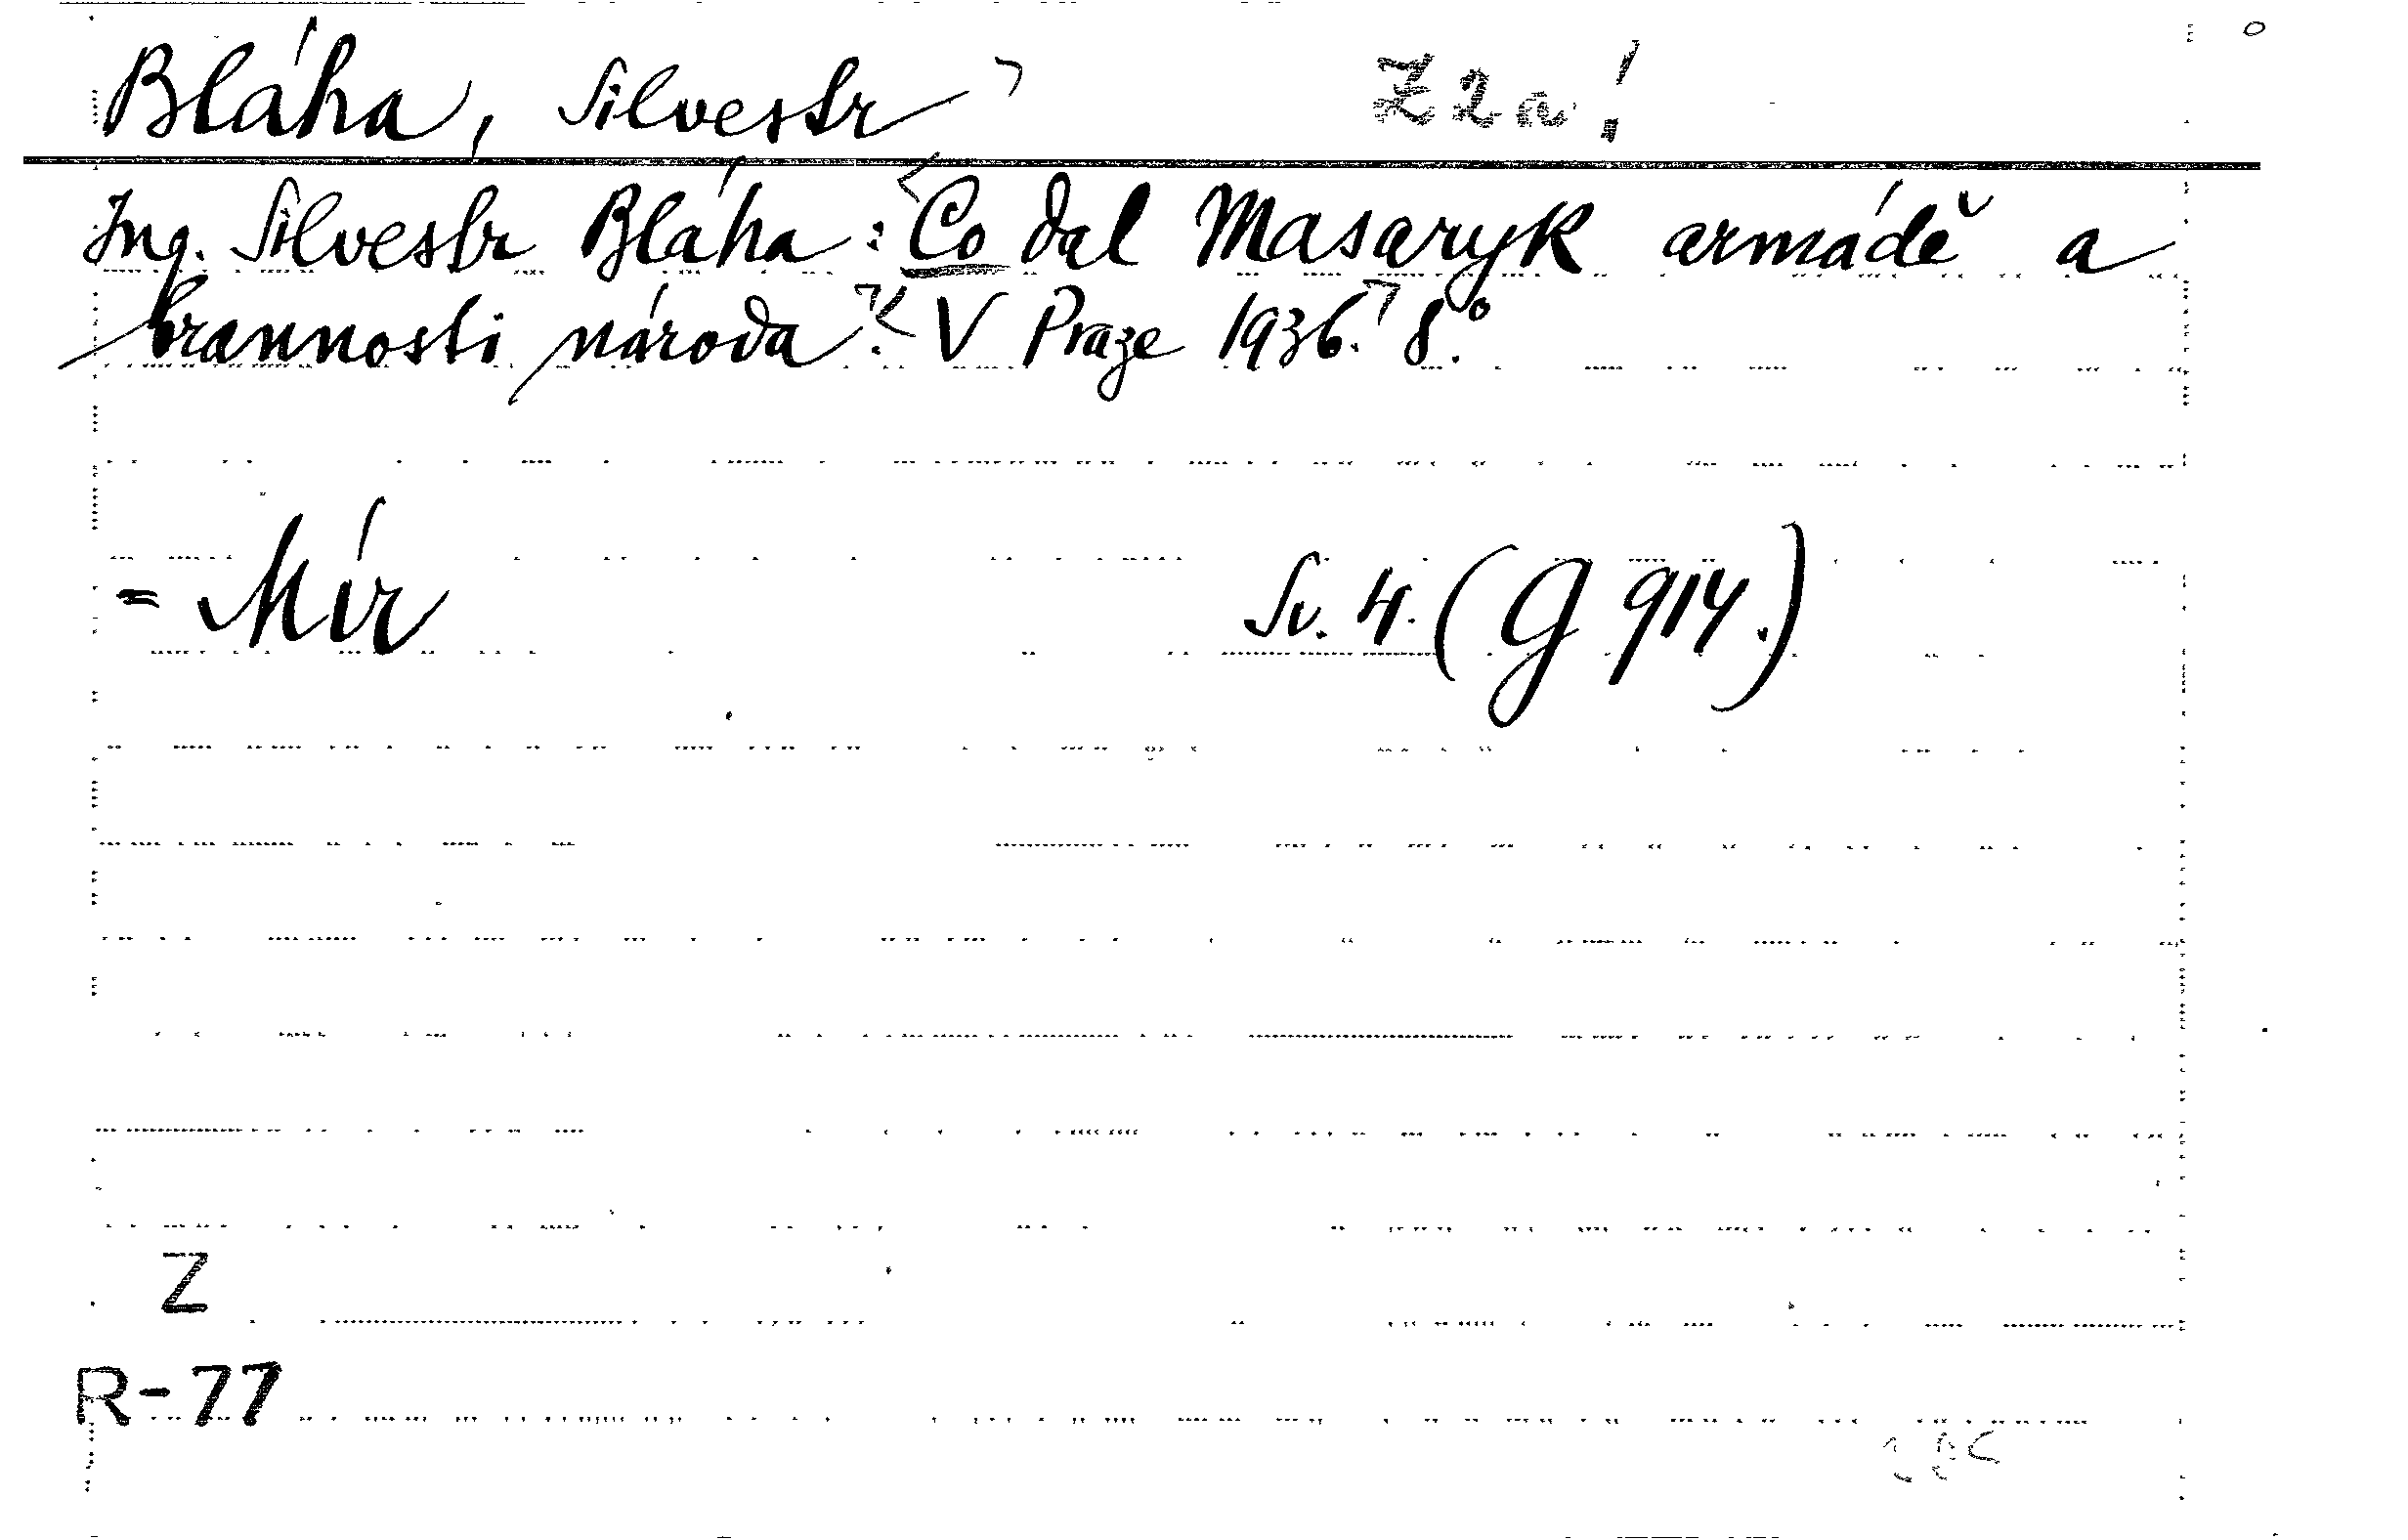 Bláha, Silvestr Z2a!
Ing. Silvestr Bláha: Co dal Masaryk armádě a
brannosti národa. V Praze 1936. 8°.
= Mír Sv. 4. (G 914.)
Z
R-77